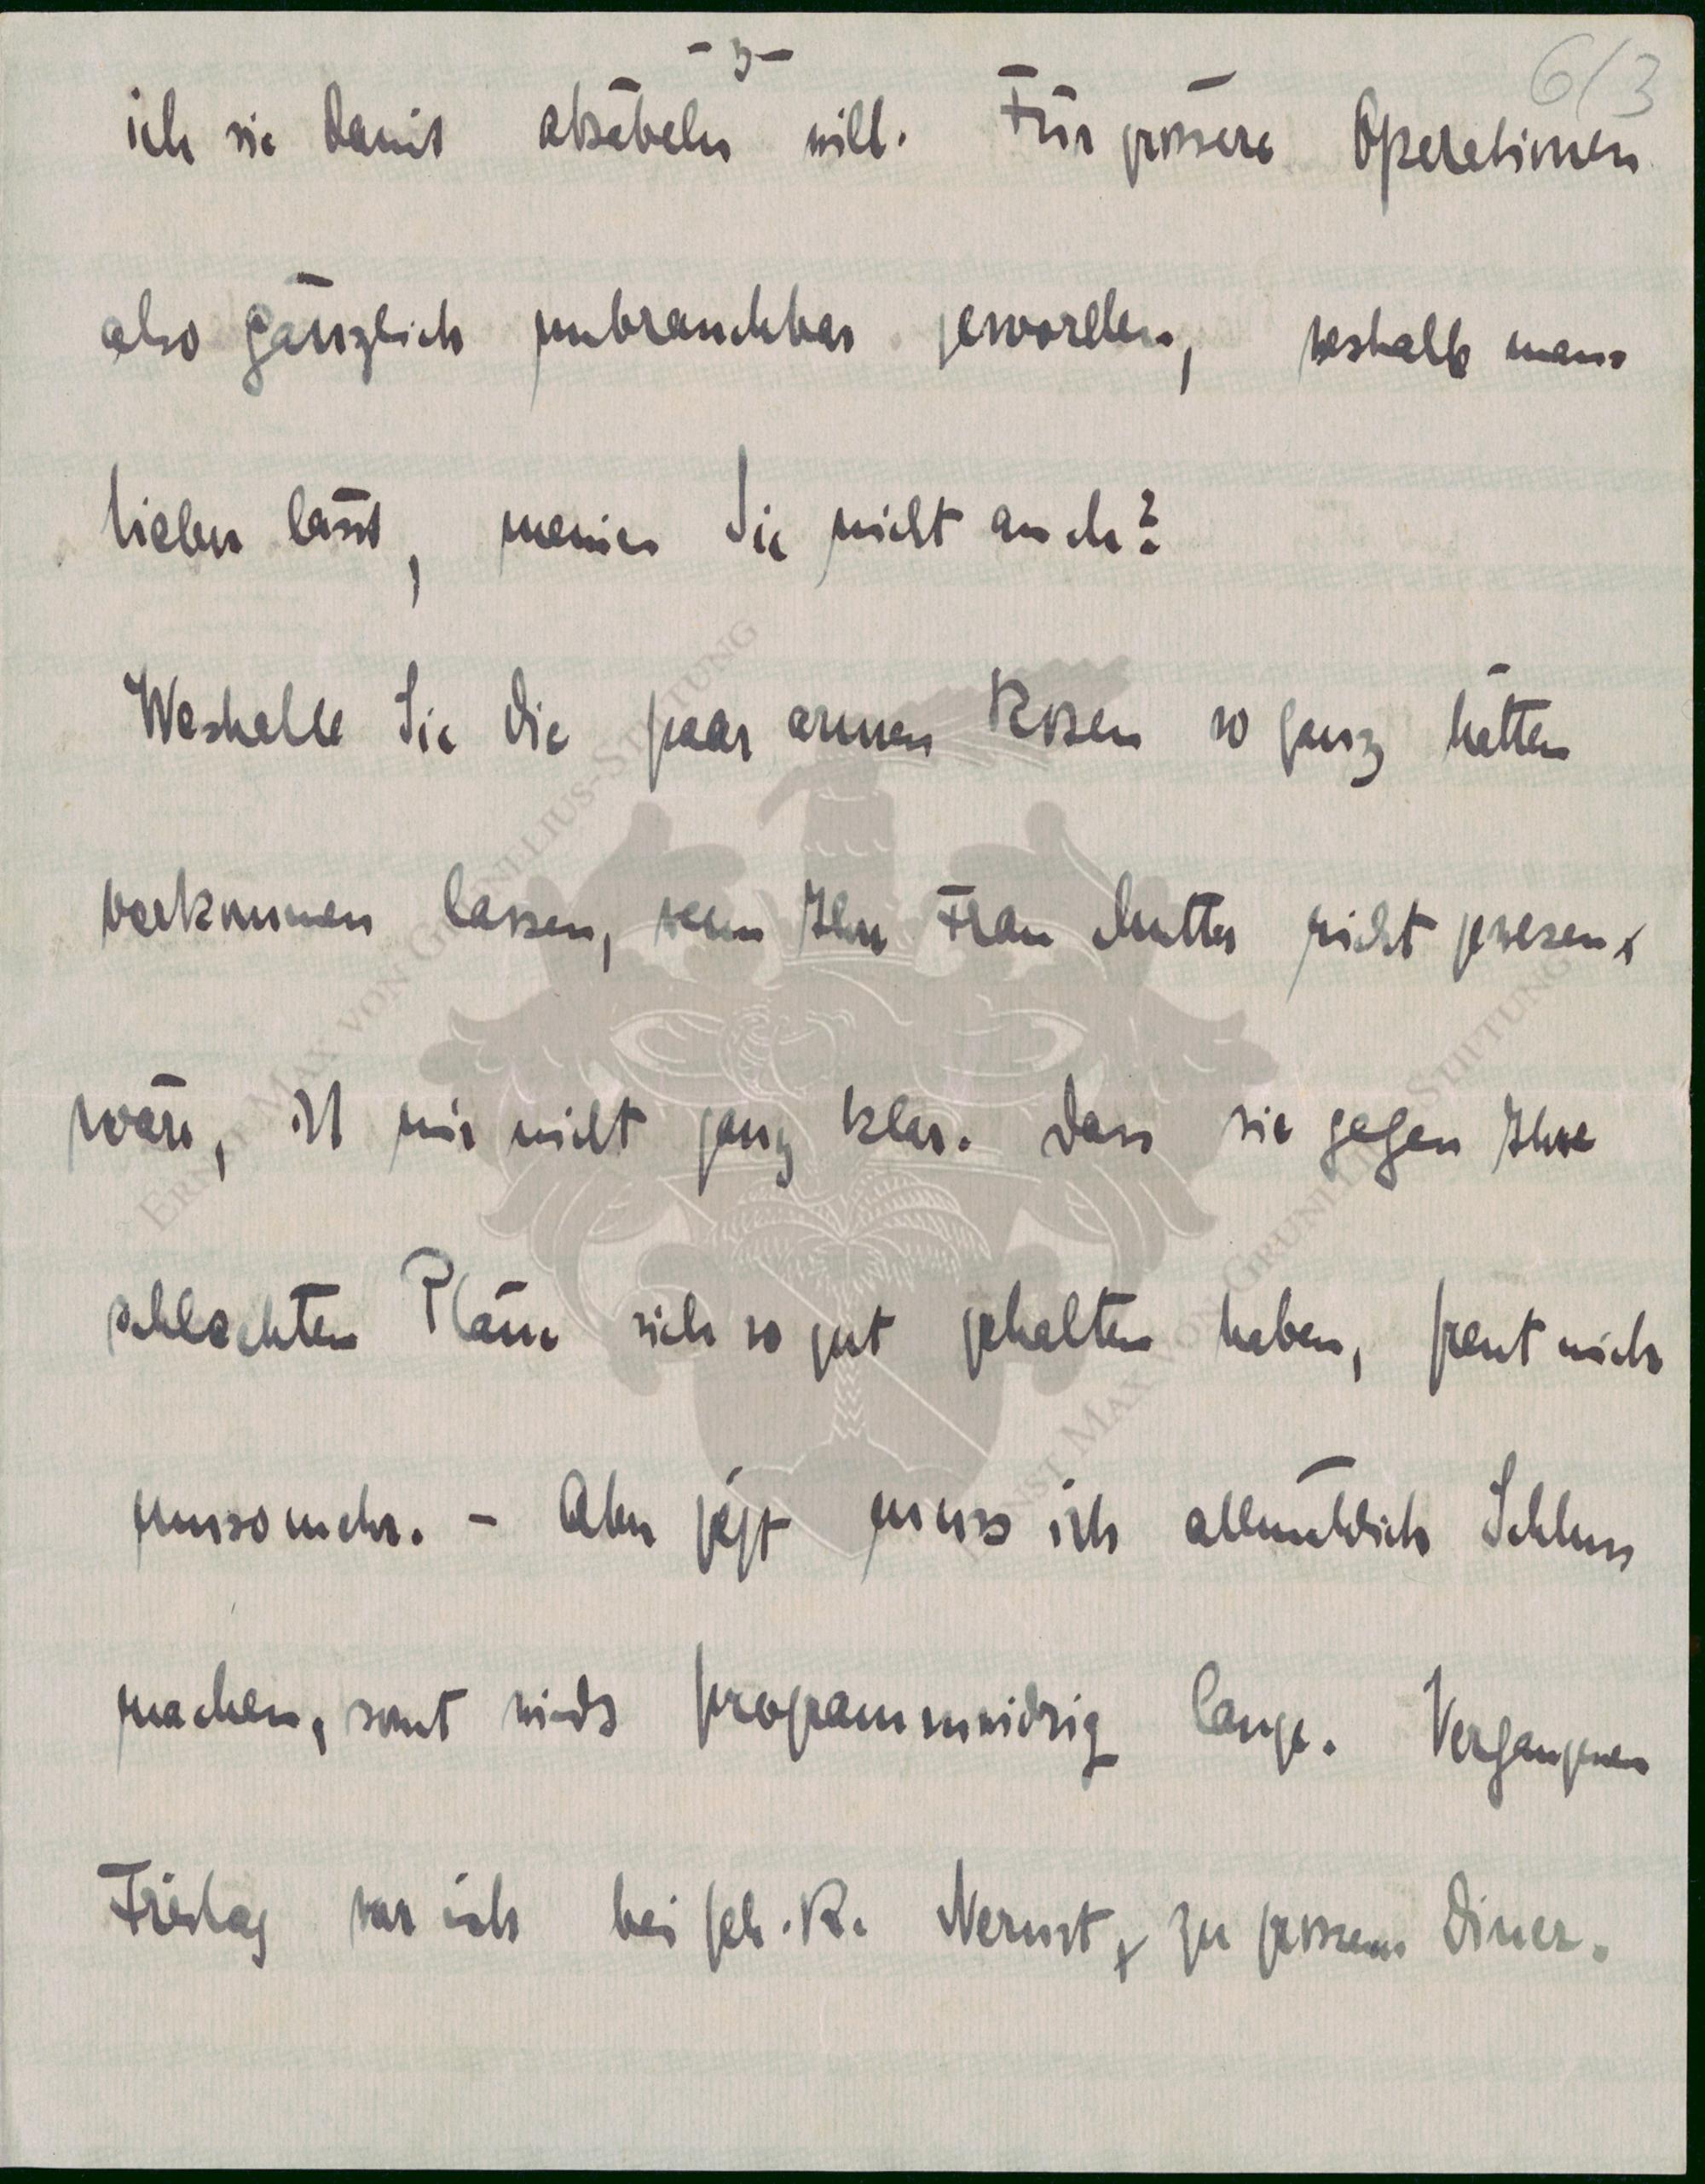 - 3 -
6/3
ich sie damit absäbeln will. Für grössere Operationen
also gänzlich unbrauchbar geworden, weshalb mans
lieber lässt, meinen Sie nicht auch?
Weshalb Sie die paar armen Rosen so ganz hätten
verkommen lassen, wenn Ihre Frau Mutter nicht gewesen
wäre, ist mir nicht ganz klar. Dass sie gegen Ihre
schlechten Pläne sich so gut gehalten haben, freut mich
umsomehr. - Aber jetzt muss ich allmählich Schluss
machen, sonst wirds programmwidrig lange. Vergangenen
Freitag war ich bei Geh. R. Nernst, zu grossem Diner.
ERNST MAX VON GRUNELIUS-STIFTUNG
ERNST MAX VON GRUNELIUS-STIFTUNG